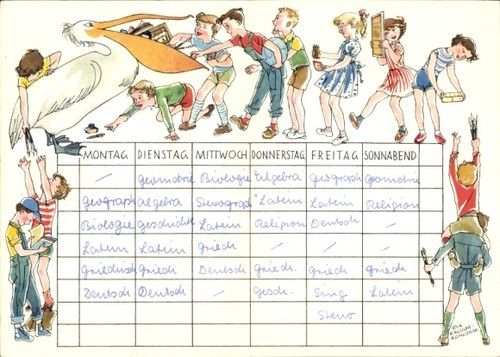 MONTAG DIENSTAG MITTWOCH DONNERSTAG FREITAG SONNABEND
/ Geometrie Biologie Algebra Geograph Geometrie
Geograph Algebra Stenograph Latein Latein Religion
Biologie Geschichte Latein Religion Deutsch /
Latein Latein Griech / / /
Griechisch Griech Deutsch Griech. Griech Griech
Deutsch Deutsch / Gesch. Sing Latein
Steno